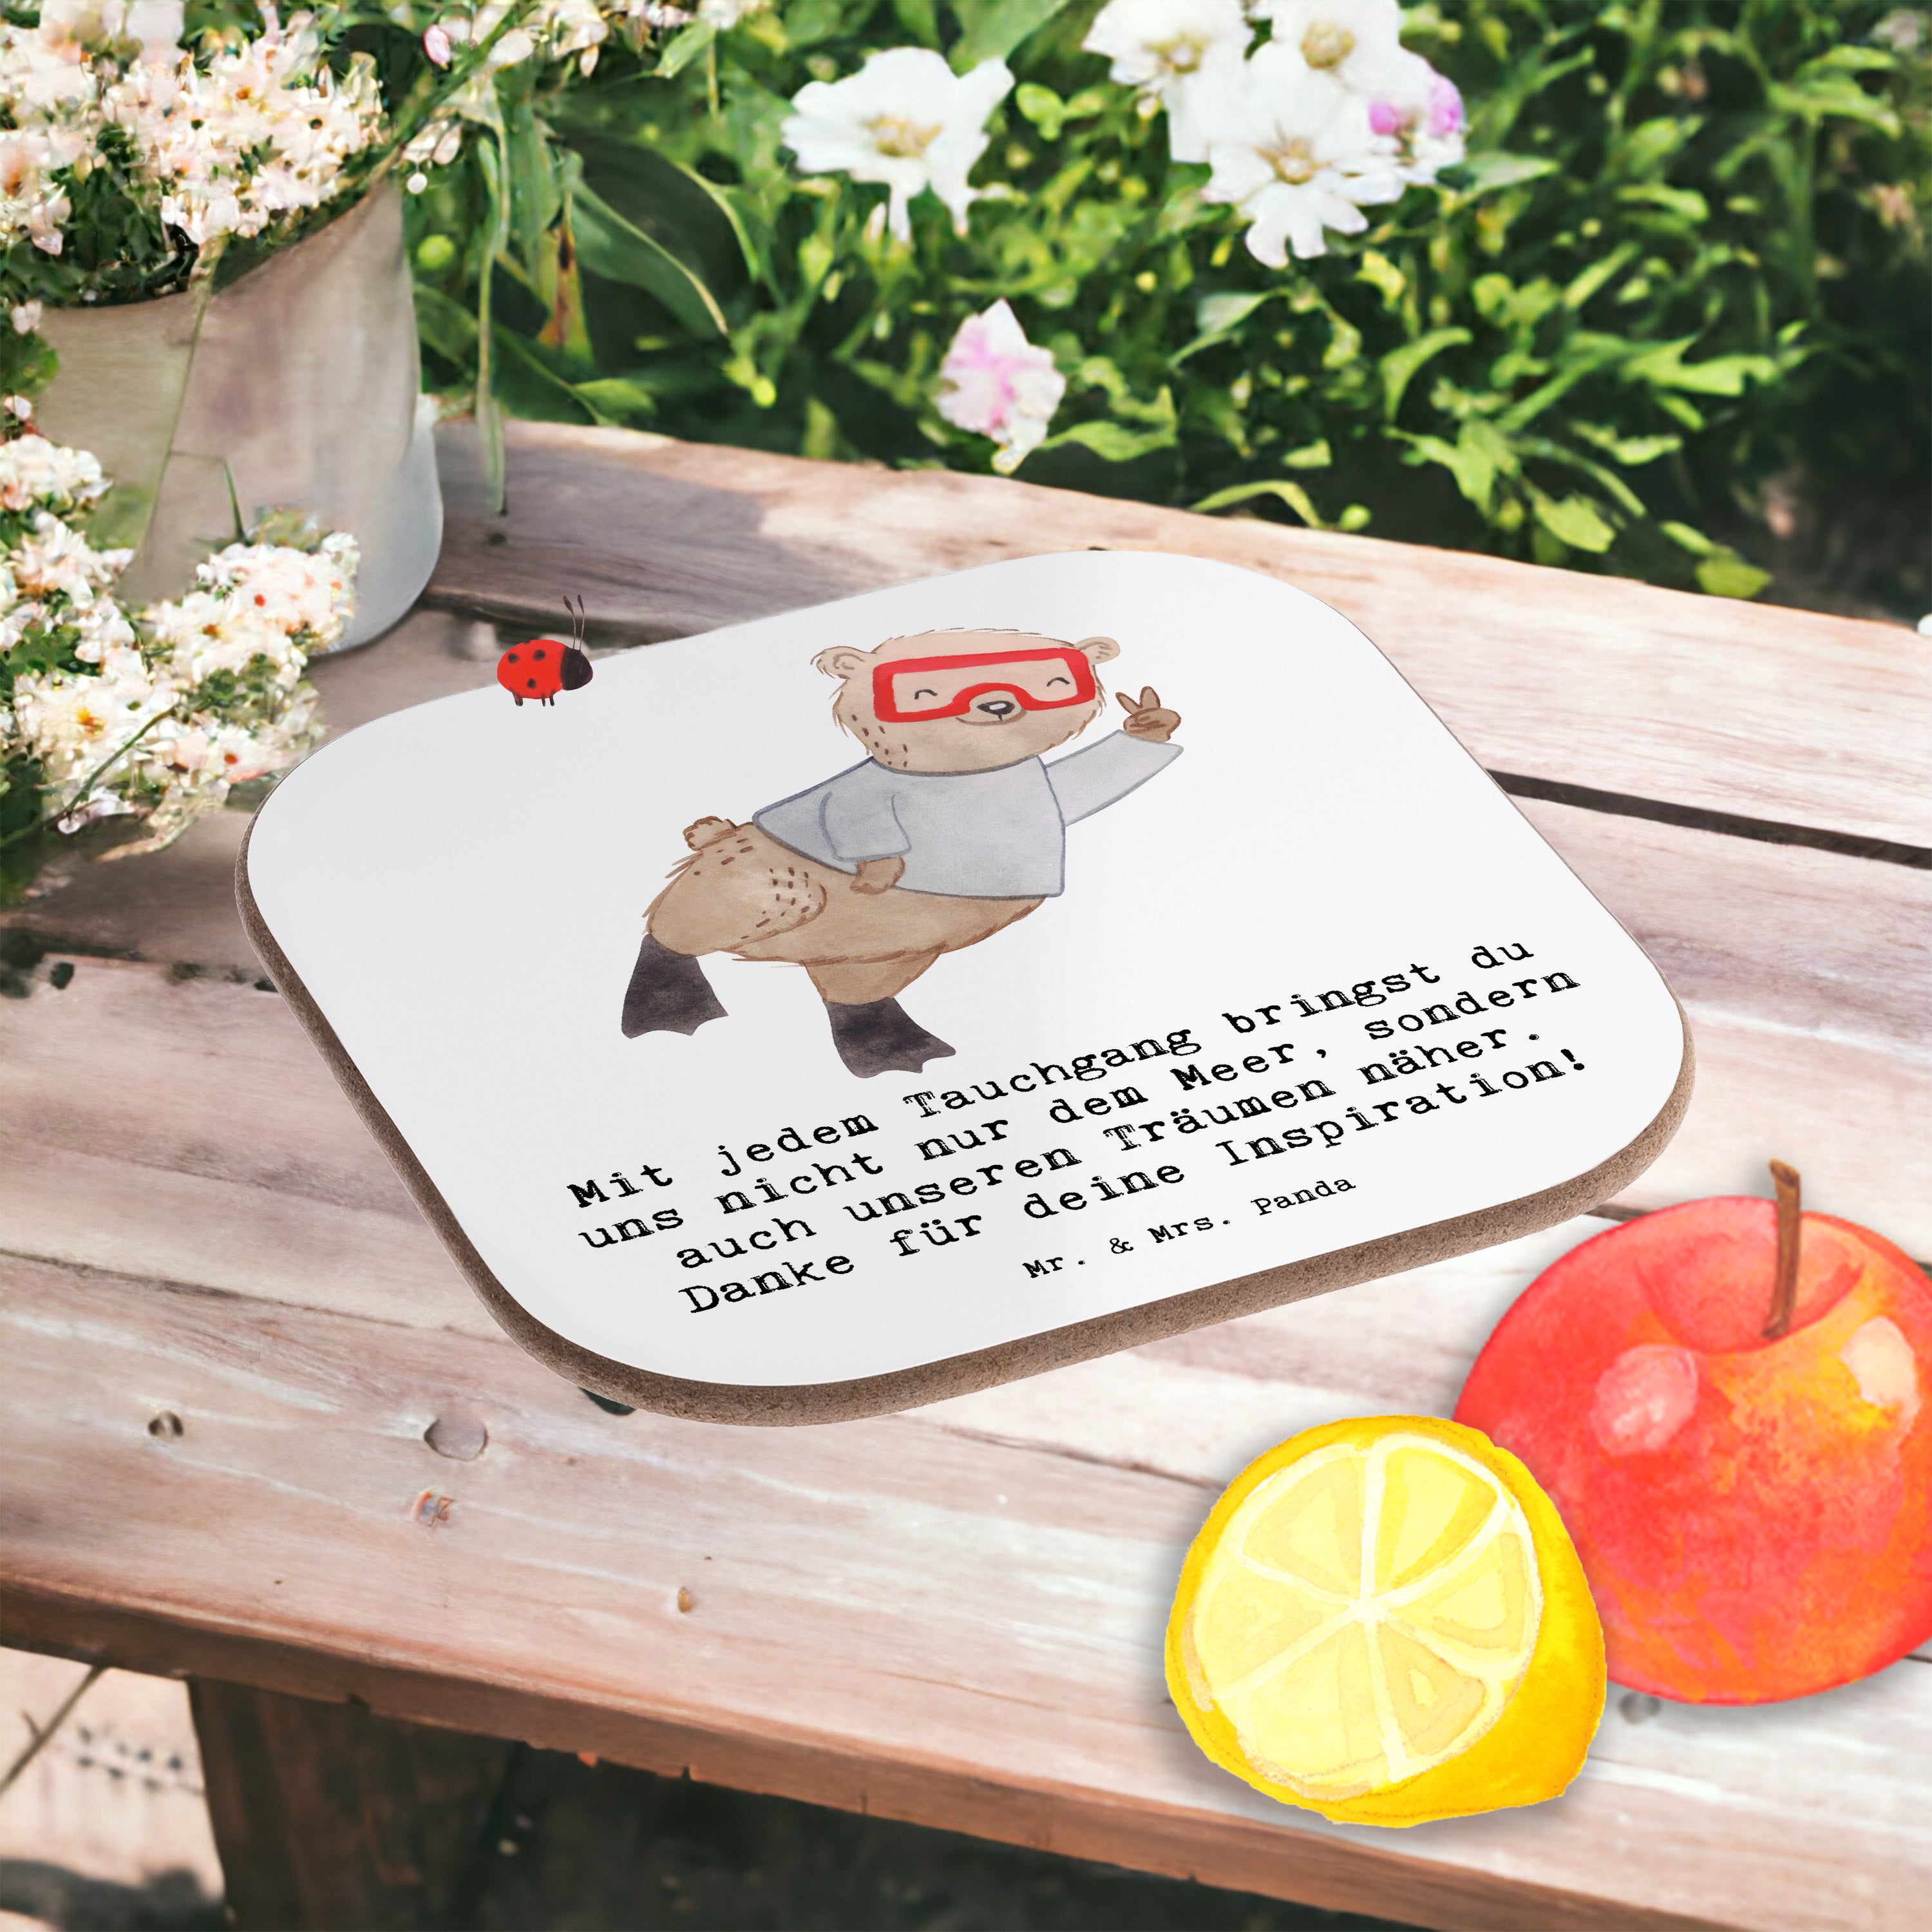 Mit jedem Tauchgang bringst du
uns nicht nur dem Meer, sondern
auch unseren Träumen näher.
Danke für deine Inspiration!
Mr. & Mrs. Panda